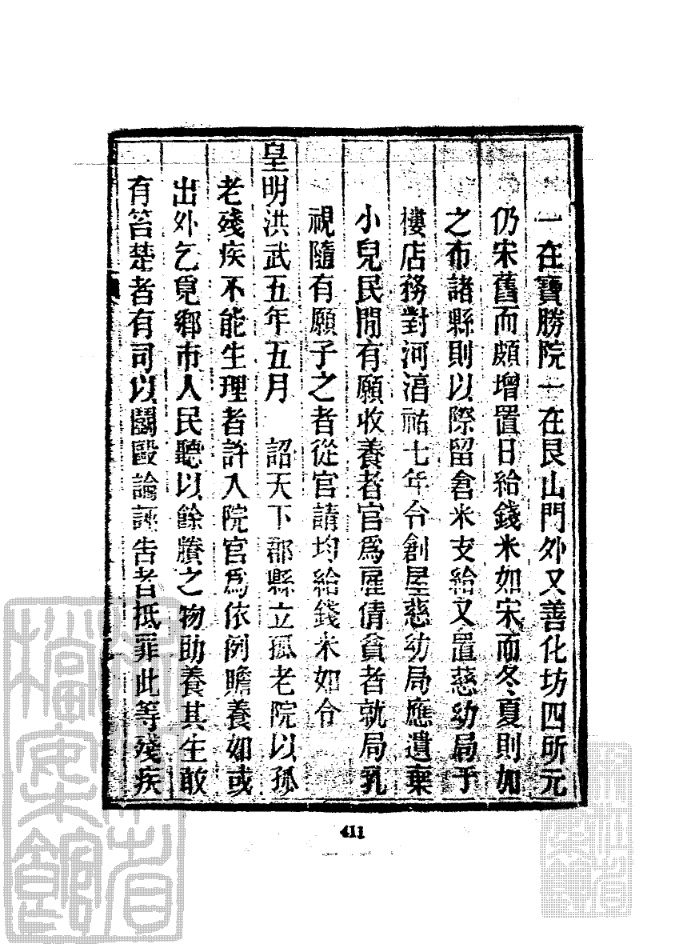 一在寶勝院一在艮山門外又善化坊四所元
仍宋舊而頗增置日給錢米如宋而冬夏則加
之布諸縣則以際留倉米支給又置慈幼局于
樓店務對河淳祐七年令創屋慈幼局應遺棄
小兒民間有願收養者官爲雇倩貧者就局乳
視隨有願子之者從官請均給錢米如令
皇明洪武五年五月 詔天下郡縣立孤老院以孤
老殘疾不能生理者許入院官爲依例贍養如或
出外乞覓鄉市人民聽以餘賸之物助養其生敢
有笞楚者有司以鬭毆論誣告者抵罪此等殘疾
411
浙江省檔案館